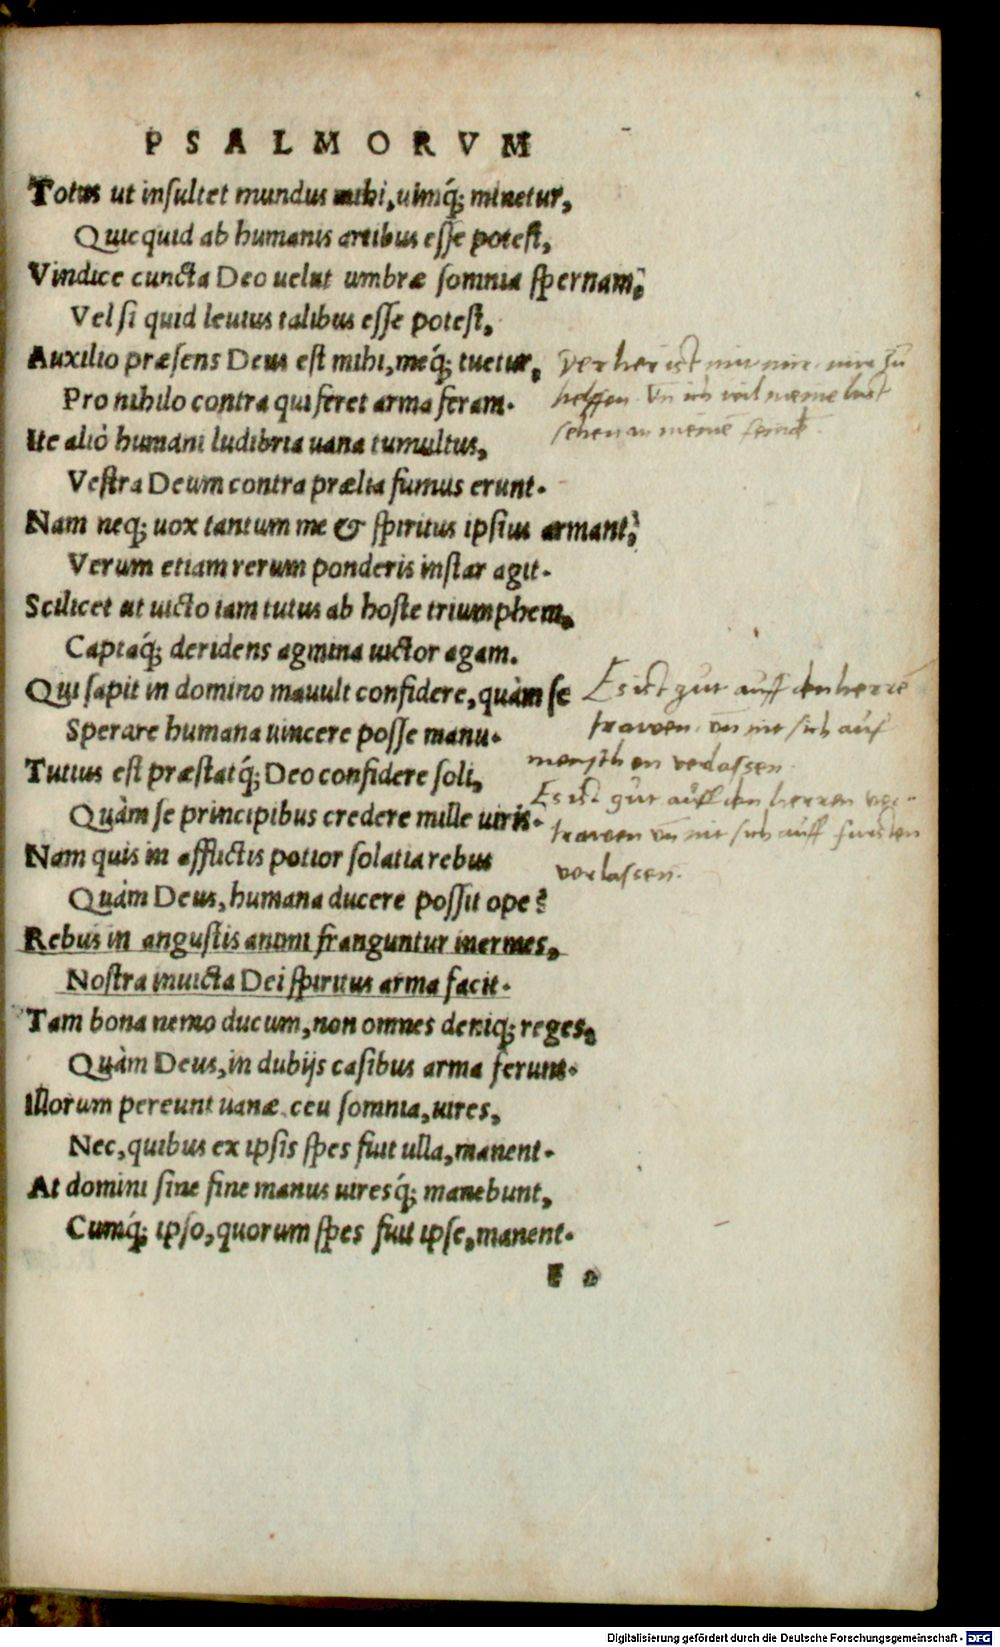 PSALMORVM
Totus ut insultet mundus mihi, uimq́; minetur,
Quicquid ab humanis artibus esse potest,
Vindice cuncta Deo uelut umbræ somnia spernam,
Vel si quid leuius talibus esse potest,
Auxilio præsens Deus est mihi, meq́; tuetur,
Pro nihilo contra qui feret arma feram.
Ite aliò humani ludibria uana tumultus,
Vestra Deum contra prælia fumus erunt.
Nam neq; uox tantum me & spiritus ipsius armant,
Verum etiam rerum ponderis instar agit.
Scilicet ut uicto iam tutus ab hoste triumphem,
Captaq́; deridens agmina uictor agam.
Qui sapit in domino mauult confidere, quàm se
Sperare humana uincere posse manu.
Tutius est præstatq́; Deo confidere soli,
Quàm se principibus credere mille uiris.
Nam quis in afflictis potior solatia rebus
Quàm Deus, humana ducere possit ope?
Rebus in angustis animi franguntur inermes,
Nostra inuicta Dei spiritus arma facit.
Tam bona nemo ducum, non omnes deniq; reges,
Quàm Deus, in dubijs casibus arma ferunt.
Illorum pereunt uanæ ceu somnia, uires,
Nec, quibus ex ipsis spes fuit ulla, manent.
At domini sine fine manus uiresq́; manebunt,
Cumq́; ipso, quorum spes fuit ipse, manent.
der her ist mit mir, mir zu
helffen. Vn̄ ich wil meine lust
sehen an meinē feindē.
Es ist gut auff den herrē
trawen, vn̄ nit sich auf
menschen verlassen.
Es ist gut auff den herren ver-
trawen vn̄ nit sich auff fursten
verlassen.
Digitalisierung gefördert durch die Deutsche Forschungsgemeinschaft - DFG